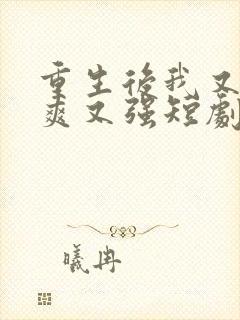 重生後我又
爽又强短劇
曦冉